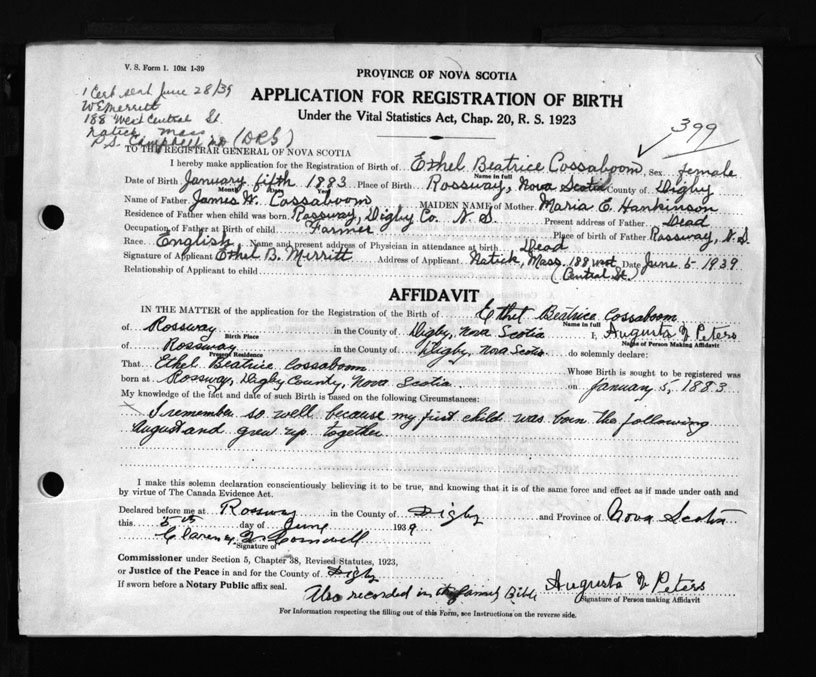 V. S. Form 1. 10M 1-39
PROVINCE OF NOVA SCOTIA
1 Cert sent June 28/39
APPLICATION FOR REGISTRATION OF BIRTH
W E Merritt
Under the Vital Statistics Act, Chap. 20, R. S. 1923
188 West Central St.
399
Natick Mass
P.S. Campbell (DRS)
TO THE REGISTRAR GENERAL OF NOVA SCOTIA
I hereby make application for the Registration of Birth of Ethel Beatrice Cossaboom, Sex female
Name in full
Date of Birth January fifth 1883 Place of Birth Rossway, Nova Scotia County of Digby
Month Day Year
Name of Father James W. Cossaboom MAIDEN NAME of Mother Maria E. Hankinson
Residence of Father when child was born Rossway, Digby Co. N.S. Present address of Father Dead
Occupation of Father at Birth of child Farmer Place of birth of Father Rossway, N.S.
Race English Name and present address of Physician in attendance at birth Dead
Signature of Applicant Ethel B. Merritt Address of Applicant Natick, Mass. 188 West Date June 5 1939
Relationship of Applicant to child (Central St.)
AFFIDAVIT
IN THE MATTER of the application for the Registration of the Birth of Ethel Beatrice Cossaboom
Name in full
of Rossway in the County of Digby, Nova Scotia I, Augusta Peters
Birth Place Name of Person Making Affidavit
of Rossway in the County of Digby, Nova Scotia do solemnly declare:
Present Residence
That Ethel Beatrice Cossaboom Whose Birth is sought to be registered was
born at Rossway, Digby County, Nova Scotia on January 5, 1883
My knowledge of the fact and date of such Birth is based on the following Circumstances:
I remember so well because my first child was born the following
August and grew up together
I make this solemn declaration conscientiously believing it to be true, and knowing that it is of the same force and effect as if made under oath and
by virtue of The Canada Evidence Act.
Declared before me at Rossway in the County of Digby and Province of Nova Scotia
this 5th day of June 1939
Clarence Cornwell
Signature of
Commissioner under Section 5, Chapter 38, Revised Statutes, 1923,
or Justice of the Peace in and for the County of Digby
If sworn before a Notary Public affix seal. Also recorded in the family Bible Augusta Peters
Signature of Person making Affidavit
For Information respecting the filling out of this Form, see Instructions on the reverse side.